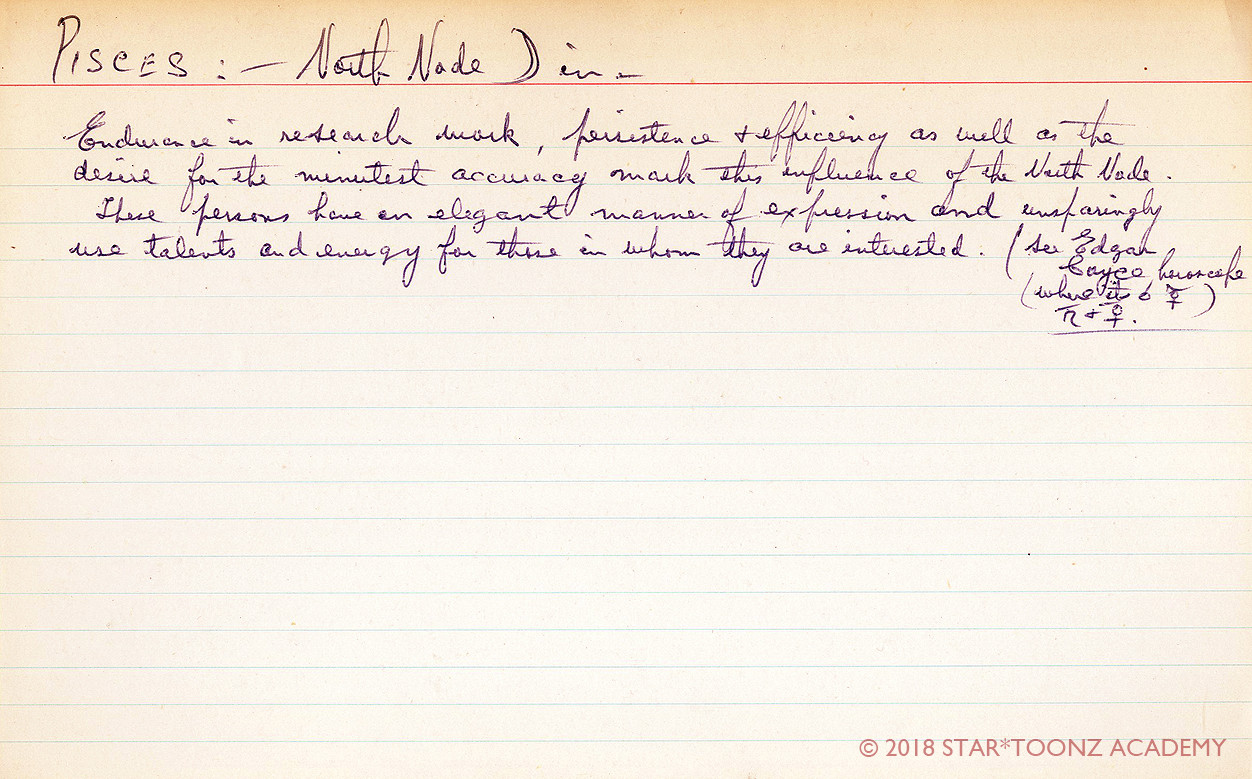 PISCES :— North Node ☽ in —
Endurance in research work, persistence & efficiency as well as the
desire for the minutest accuracy mark this influence of the North Node.
These persons have an elegant manner of expression and unsparingly
use talents and energy for those in whom they are interested. (see Edgar
Cayce horoscope
(where it ☌ ☿)
♄ + ♀.
© 2018 STAR*TOONZ ACADEMY